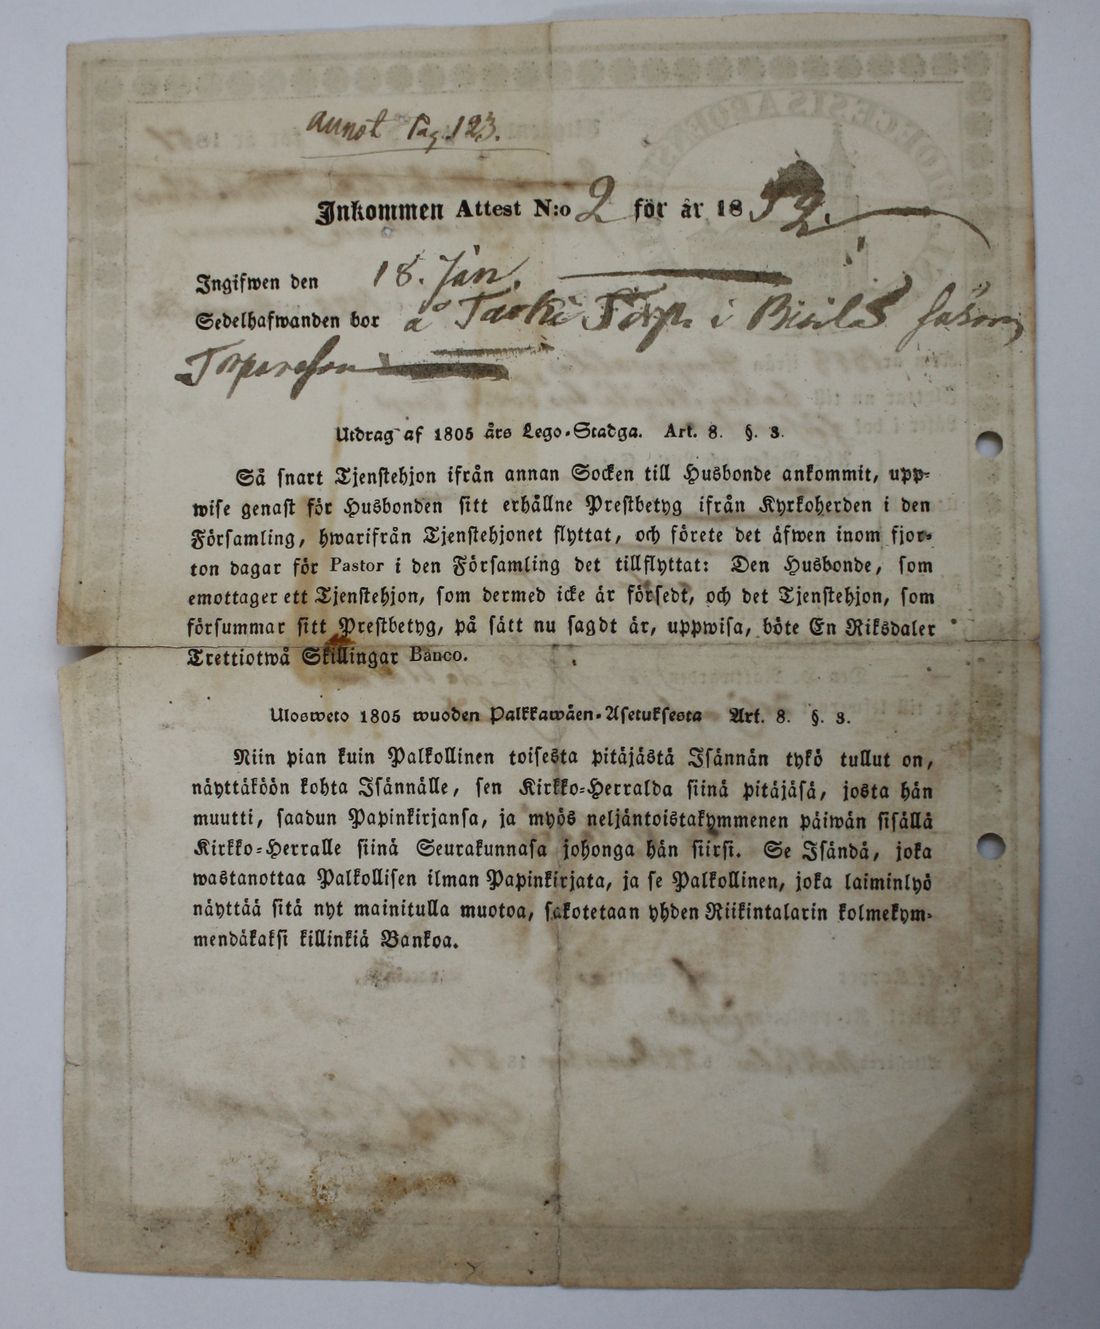 annot Pag. 123.
Inkommen Attest N:o 2 för år 1852.
Ingifwen den 18. Jan.
Sedelhafwanden bor å Torp i såsom
Utdrag af 1805 års Lego-Stadga. Art. 8. §. 3.
Så snart Tjenstehjon ifrån annan Socken till Husbonde ankommit, upp-
wise genast för Husbonden sitt erhållne Prestbetyg ifrån Kyrkoherden i den
Församling, hwarifrån Tjenstehjonet flyttat, och förete det äfwen inom fjor-
ton dagar för Pastor i den Församling det tillflyttat: Den Husbonde, som
emottager ett Tjenstehjon, som dermed icke är försedt, och det Tjenstehjon, som
försummar sitt Prestbetyg, på sätt nu sagdt är, uppwisa, böte En Riksdaler
Trettiotwå Skillingar Banco.
Ulosweto 1805 wuoden Palkkawäen-Asetuksesta Art. 8. §. 3.
Niin pian kuin Palkollinen toisesta pitäjästä Isännän tykö tullut on,
näyttäköön kohta Isännälle, sen Kirkko-Herralda siinä pitäjäsä, josta hän
muutti, saadun Papinkirjansa, ja myös neljäntoistakymmenen päiwän sisällä
Kirkko-Herralle siinä Seurakunnasa johonga hän siirsi. Se Isändä, joka
wastanottaa Palkollisen ilman Papinkirjata, ja se Palkollinen, joka laiminlyö
näyttää sitä nyt mainitulla muotoa, sakotetaan yhden Riikintalarin kolmekym-
mendäkaksi killinkiä Bankoa.